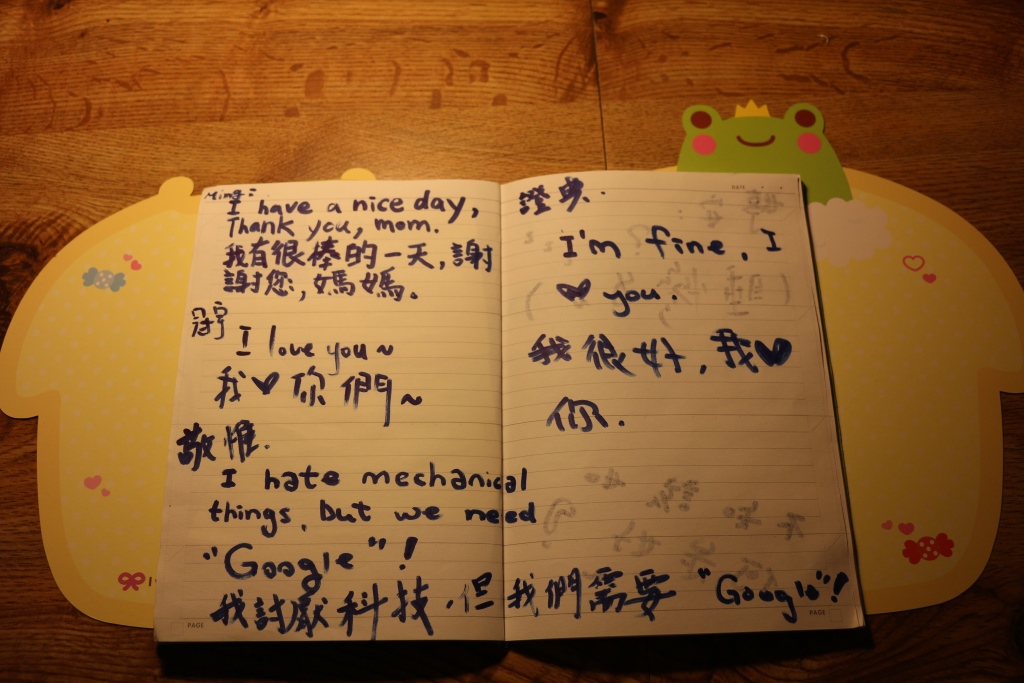 Ming:
I have a nice day,
Thank you, mom.
我有很棒的一天，謝
謝您，媽媽。
冠宇
I love you~
我♥你們~
敬惟.
I hate mechanical
things, but we need
"Google"!
我討厭科技，但我們需要"Google"!
PAGE
DATE
證典.
I'm fine, I
♥ you.
我很好，我♥
你.
PAGE